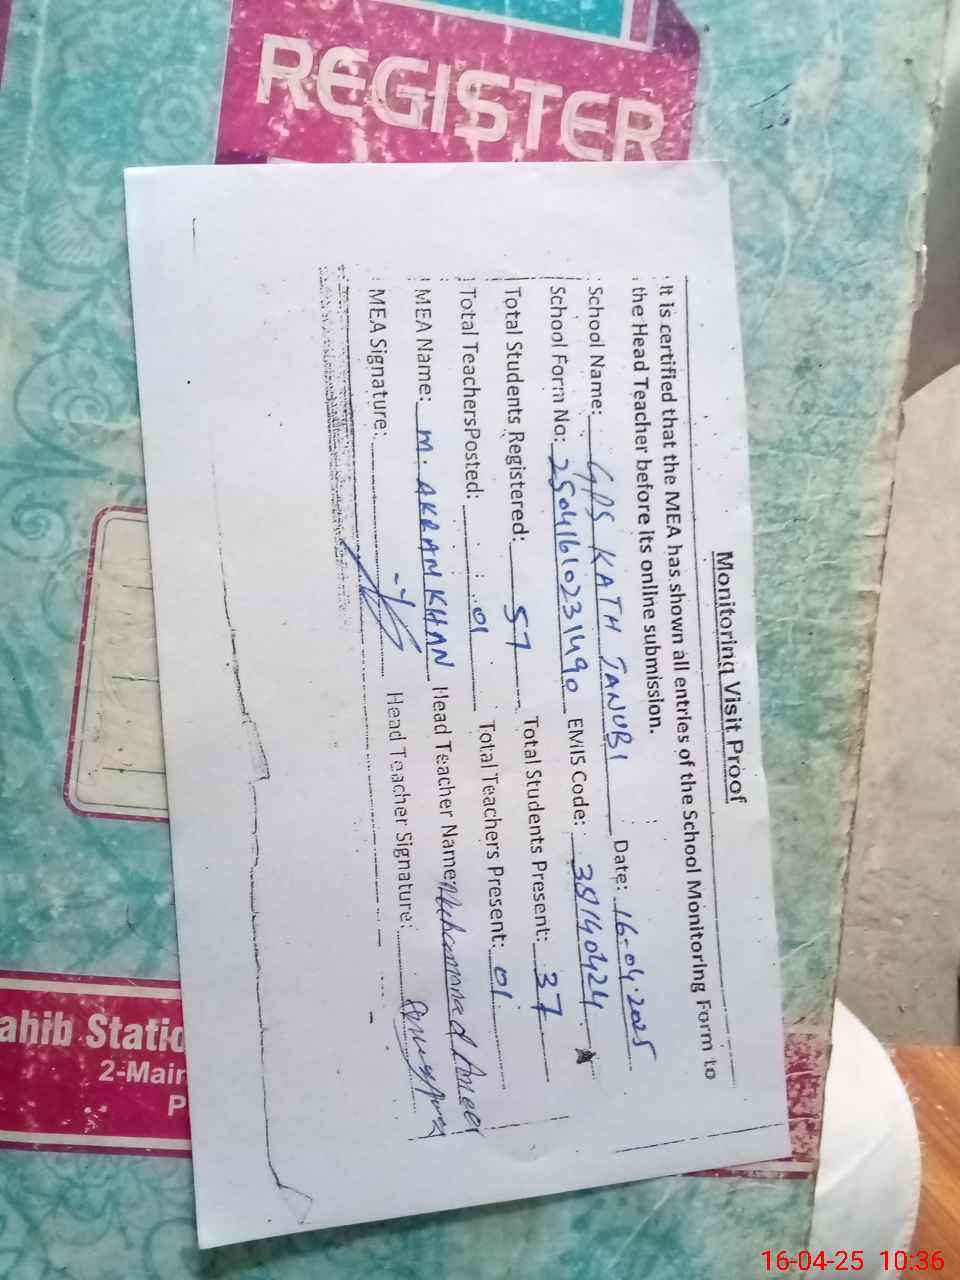 REGISTER
Monitoring Visit Proof
It is certified that the MEA has shown all entries of the School Monitoring Form to
the Head Teacher before its online submission.
School Name: GPS KATH JANUBI Date: 16-04-2025
School Form No: 25041610231490 EMIS Code: 38140424
Total Students Registered: 57 Total Students Present: 37
Total TeachersPosted: 01 Total Teachers Present: 01
MEA Name: M. AKRAM KHAN Head Teacher Name: Muhammad Ameer
MEA Signature: Head Teacher Signature:
ahib Statio
2-Main
P
16-04-25 10:36